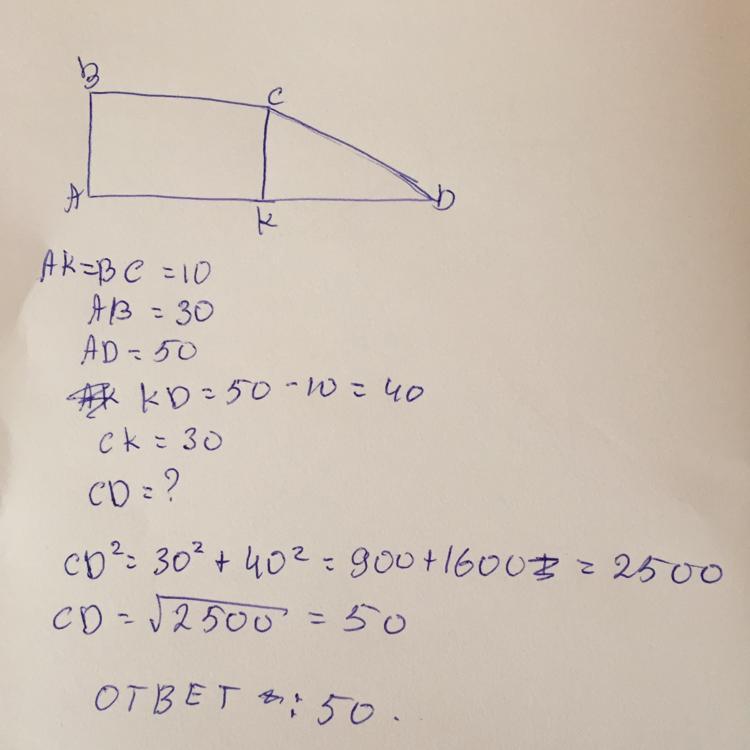 B
C
A
K
D
AK=BC =10
AB = 30
AD = 50
KD = 50 - 10 = 40
CK = 30
CD = ?
CD² = 30² + 40² = 900 + 1600 = 2500
CD = √2500 = 50
ОТВЕТ : 50.